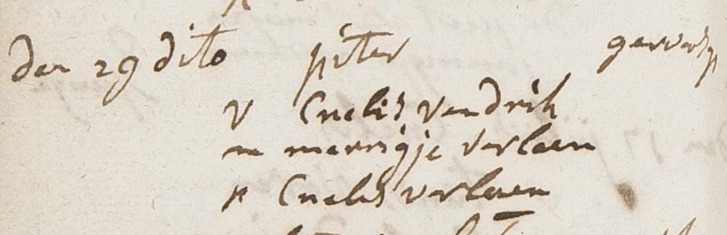 den 29 dito piter
V Cnelis van drik
m merrigje verloen
p Cnelis verloen